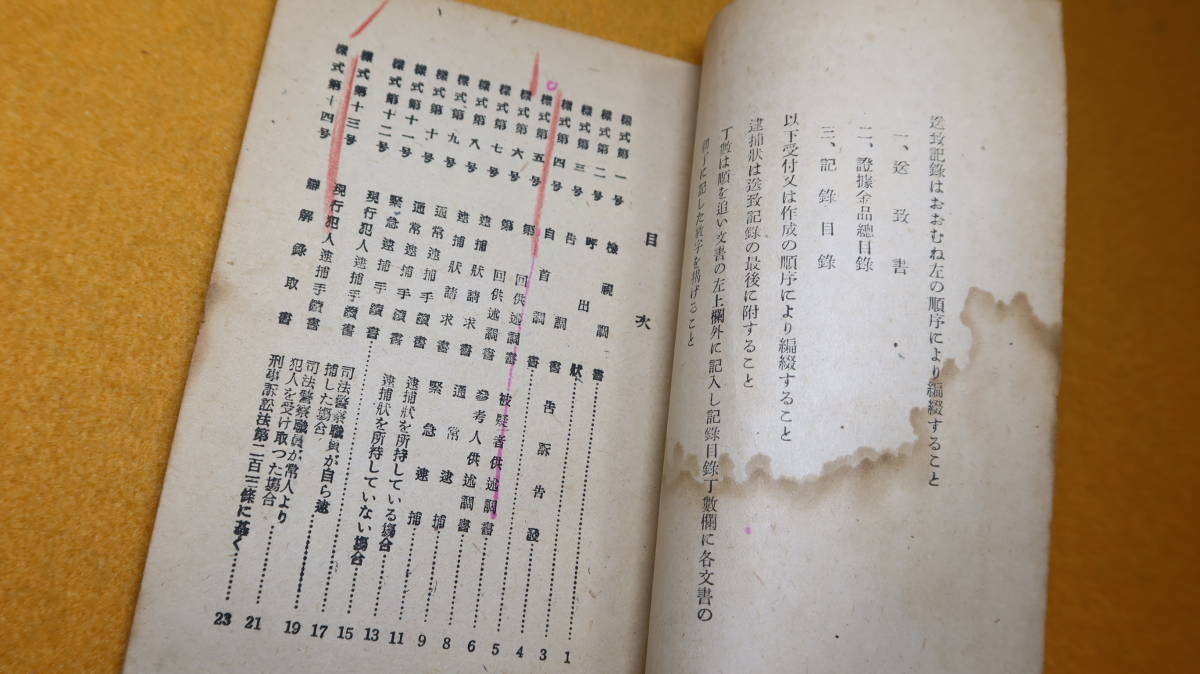 送致記錄はおおむね左の順序により編綴すること
一、送致書
二、證據金品總目錄
三、記錄目錄
以下受付又は作成の順序により編綴すること
逮捕狀は送致記錄の最後に附すること
丁數は順を追い文書の左上欄外に記入し記錄目錄丁數欄に各文書の
初丁に記した数字を揭げること
目次
樣式第一号 檢視調書 1
樣式第二号 呼出狀 3
樣式第三号 告訴告發調書 4
樣式第四号 自首調書 5
樣式第五号 第 回供述調書 被疑者供述調書 6
樣式第六号 第 回供述調書 參考人供述調書 8
樣式第七号 逮捕狀請求書 通常逮捕 9
樣式第八号 逮捕狀請求書 緊急逮捕 11
樣式第九号 通常逮捕手續書 逮捕狀を所持している場合 13
樣式第十号 通常逮捕手續書 逮捕狀を所持していない場合 15
樣式第十一号 緊急逮捕手續書
樣式第十二号 現行犯人逮捕手續書 司法警察職員が自ら逮捕した場合 19
樣式第十三号 現行犯人逮捕手續書 司法警察職員が常人より犯人を受け取つた場合 21
樣式第十四号 辯解錄取書 刑事訴訟法第二百三條に基く 23